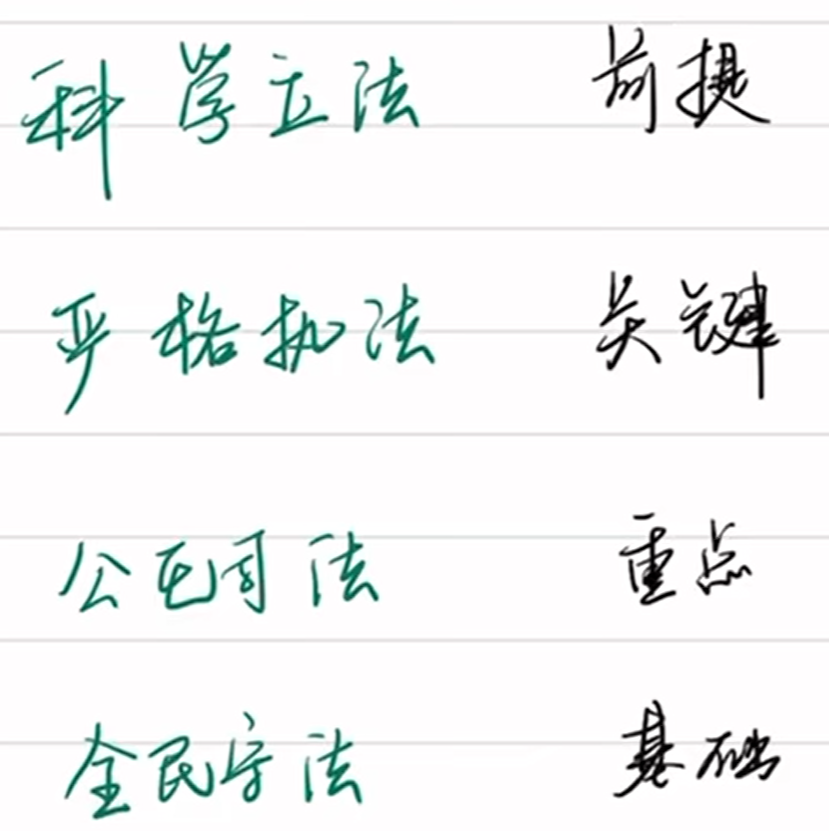 科学立法 前提
严格执法 关键
公正司法 重点
全民守法 基础